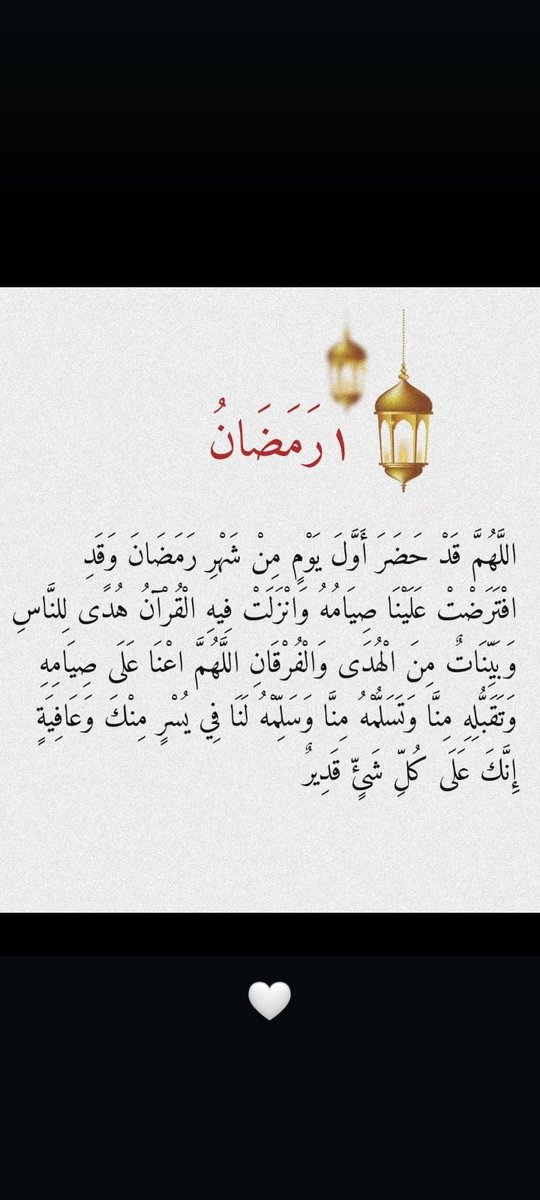 ١ رَمَضَانُ
اللَّهُمَّ قَدْ حَضَرَ أَوَّلَ يَوْمٍ مِنْ شَهْرِ رَمَضَانَ وَقَدِ
افْتَرَضْتْ عَلَيْنَا صِيَامُهُ وَانْزَلَتْ فِيهِ الْقُرْآنُ هُدًى لِلنَّاسِ
وَبَيِّنَاتٌ مِنَ الْهُدَى وَالْفُرْقَانِ اللَّهُمَّ اعْنَا عَلَى صِيَامِهِ
وَتَقَبُّلِهِ مِنَّا وَتَسَلَّمْهُ مِنَّا وَسَلِّمْهُ لَنَا فِي يُسْرٍ مِنْكَ وَعَافِيَةٍ
إِنَّكَ عَلَى كُلِّ شَيْءٍ قَدِيرٌ